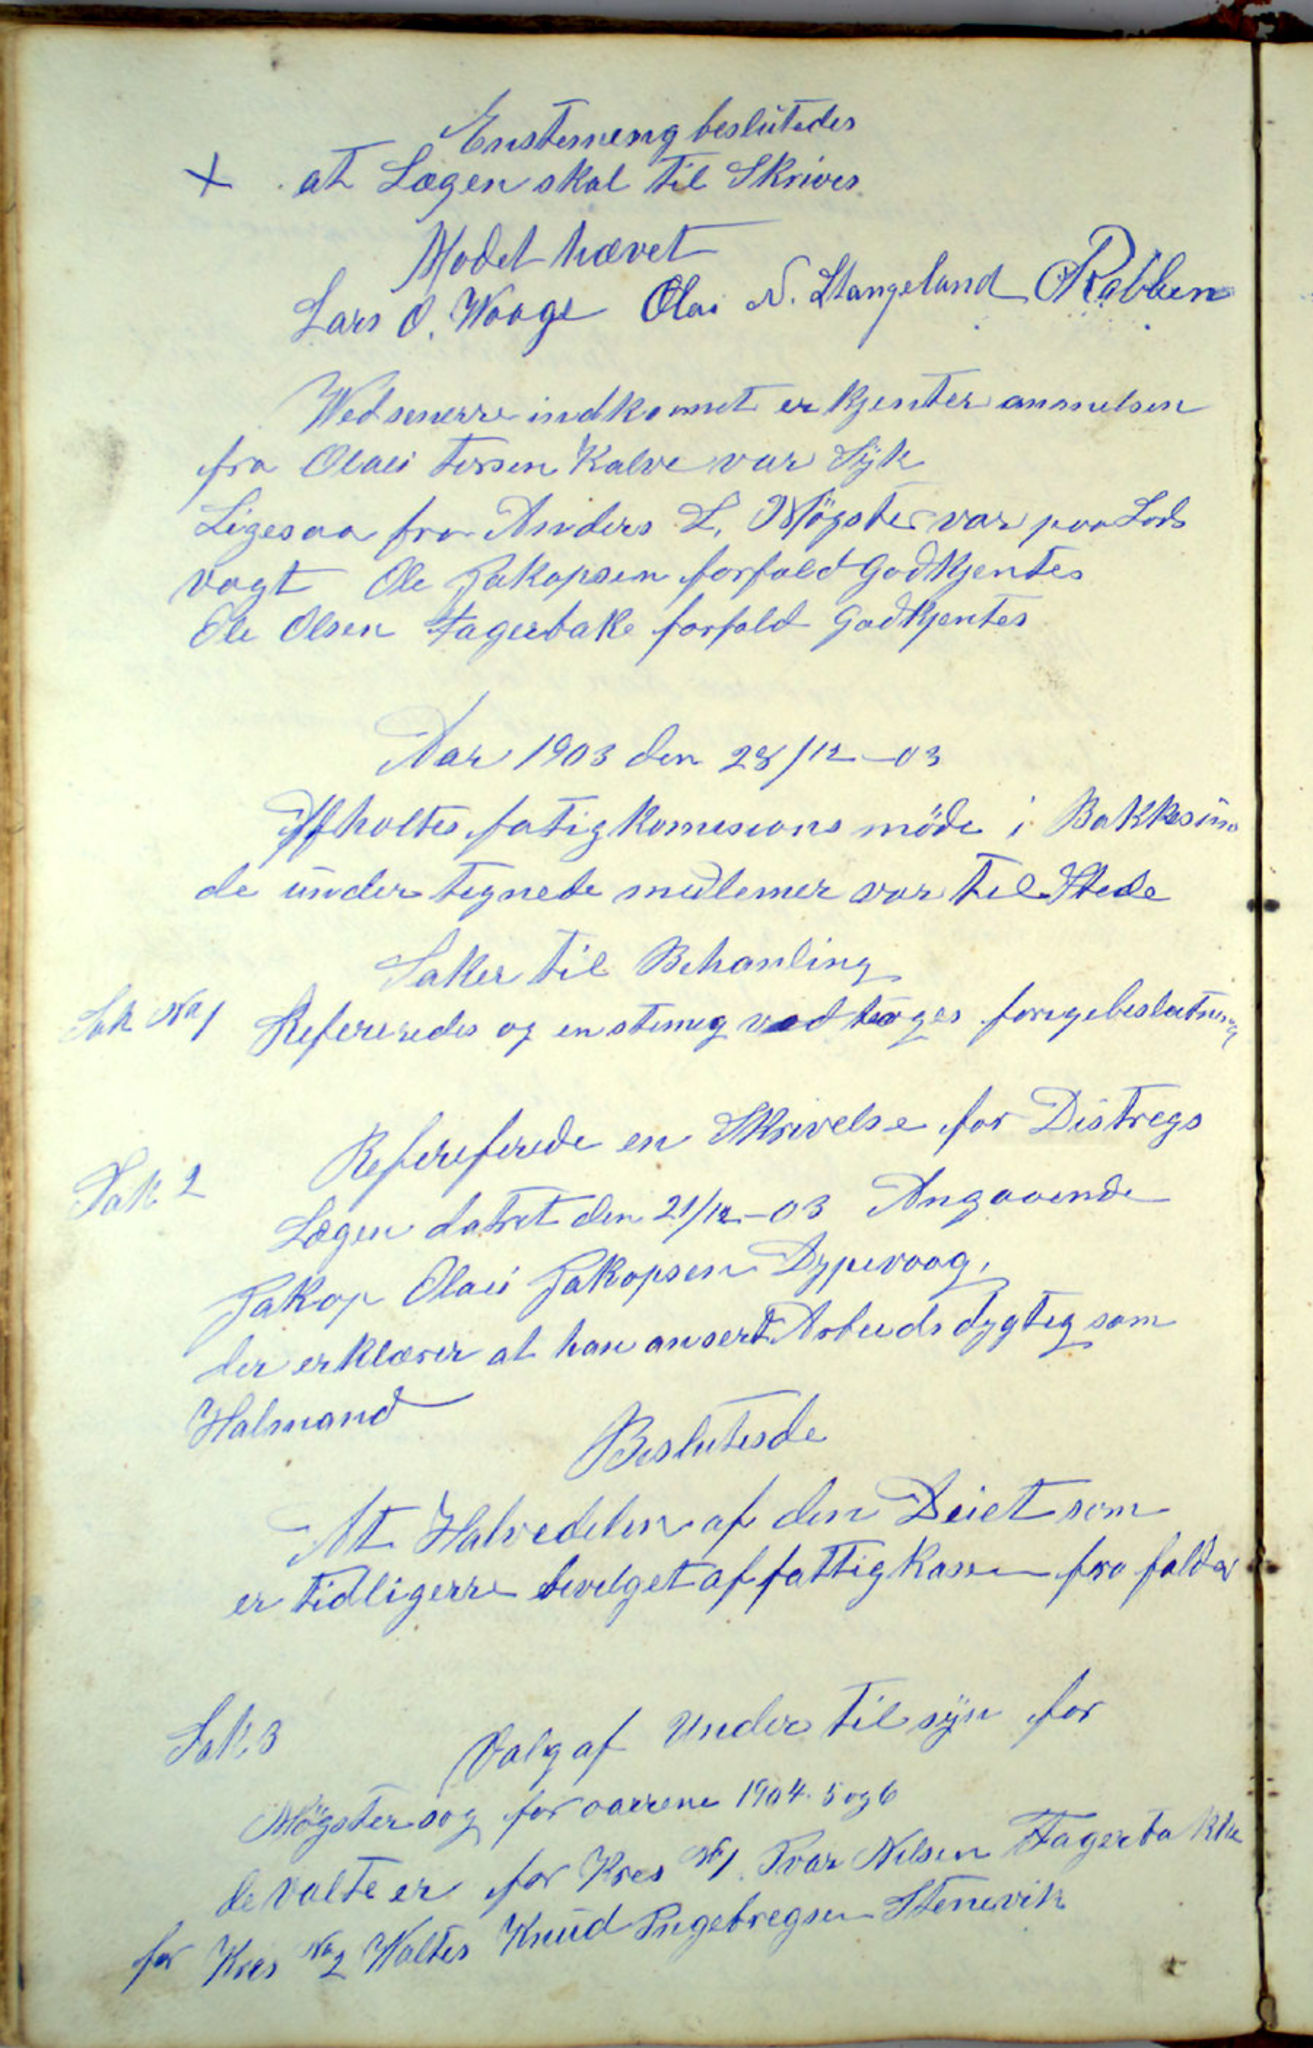 Enstemeng beslutedes
X at Lægen skal til Skrives
Modet hævet
Lars O. Waage Olai N. Stangeland Rabben
Wed senerre indkomet er kjentes anmelsen
fra Olaus Tersen Kalve var Syk
Ligesaa fra Anders L. Møgster var paa Lods
vagt Ole Jakopsen forfald Godkjentes
Ole Olsen Fagerbake forfald Godkjentes
Aar 1903 den 28/12-03
Afholtes fatigkomisions møde i Bakkesun
de under tegnede medlemer var til Stede
Saker til Behanling
Sak No 1 Refereredes og enstemig vedtoges forrigebeslutning
Sak 2 Refereferede en Skrivelse for Distregs
Lægen datret den 21/12-03 Angaaende
Jakop Olai Jakopsen Dypevaag,
der erklærer at han ansert Arbeids dygtig som
Halmand
Beslutesde
At Halvedelen af den Deiet som
er tidligerre bevelget af fattigkassen fra falder
Sak 3 Valg af Under tilsyn for
Møgster sog for aarrene 1904. 5 og 6
de valte er for Kres No 1. Ivar Nilsen Fagerbakke
for Kres No 2 Waltes Knud Ingebregsen Stenevik